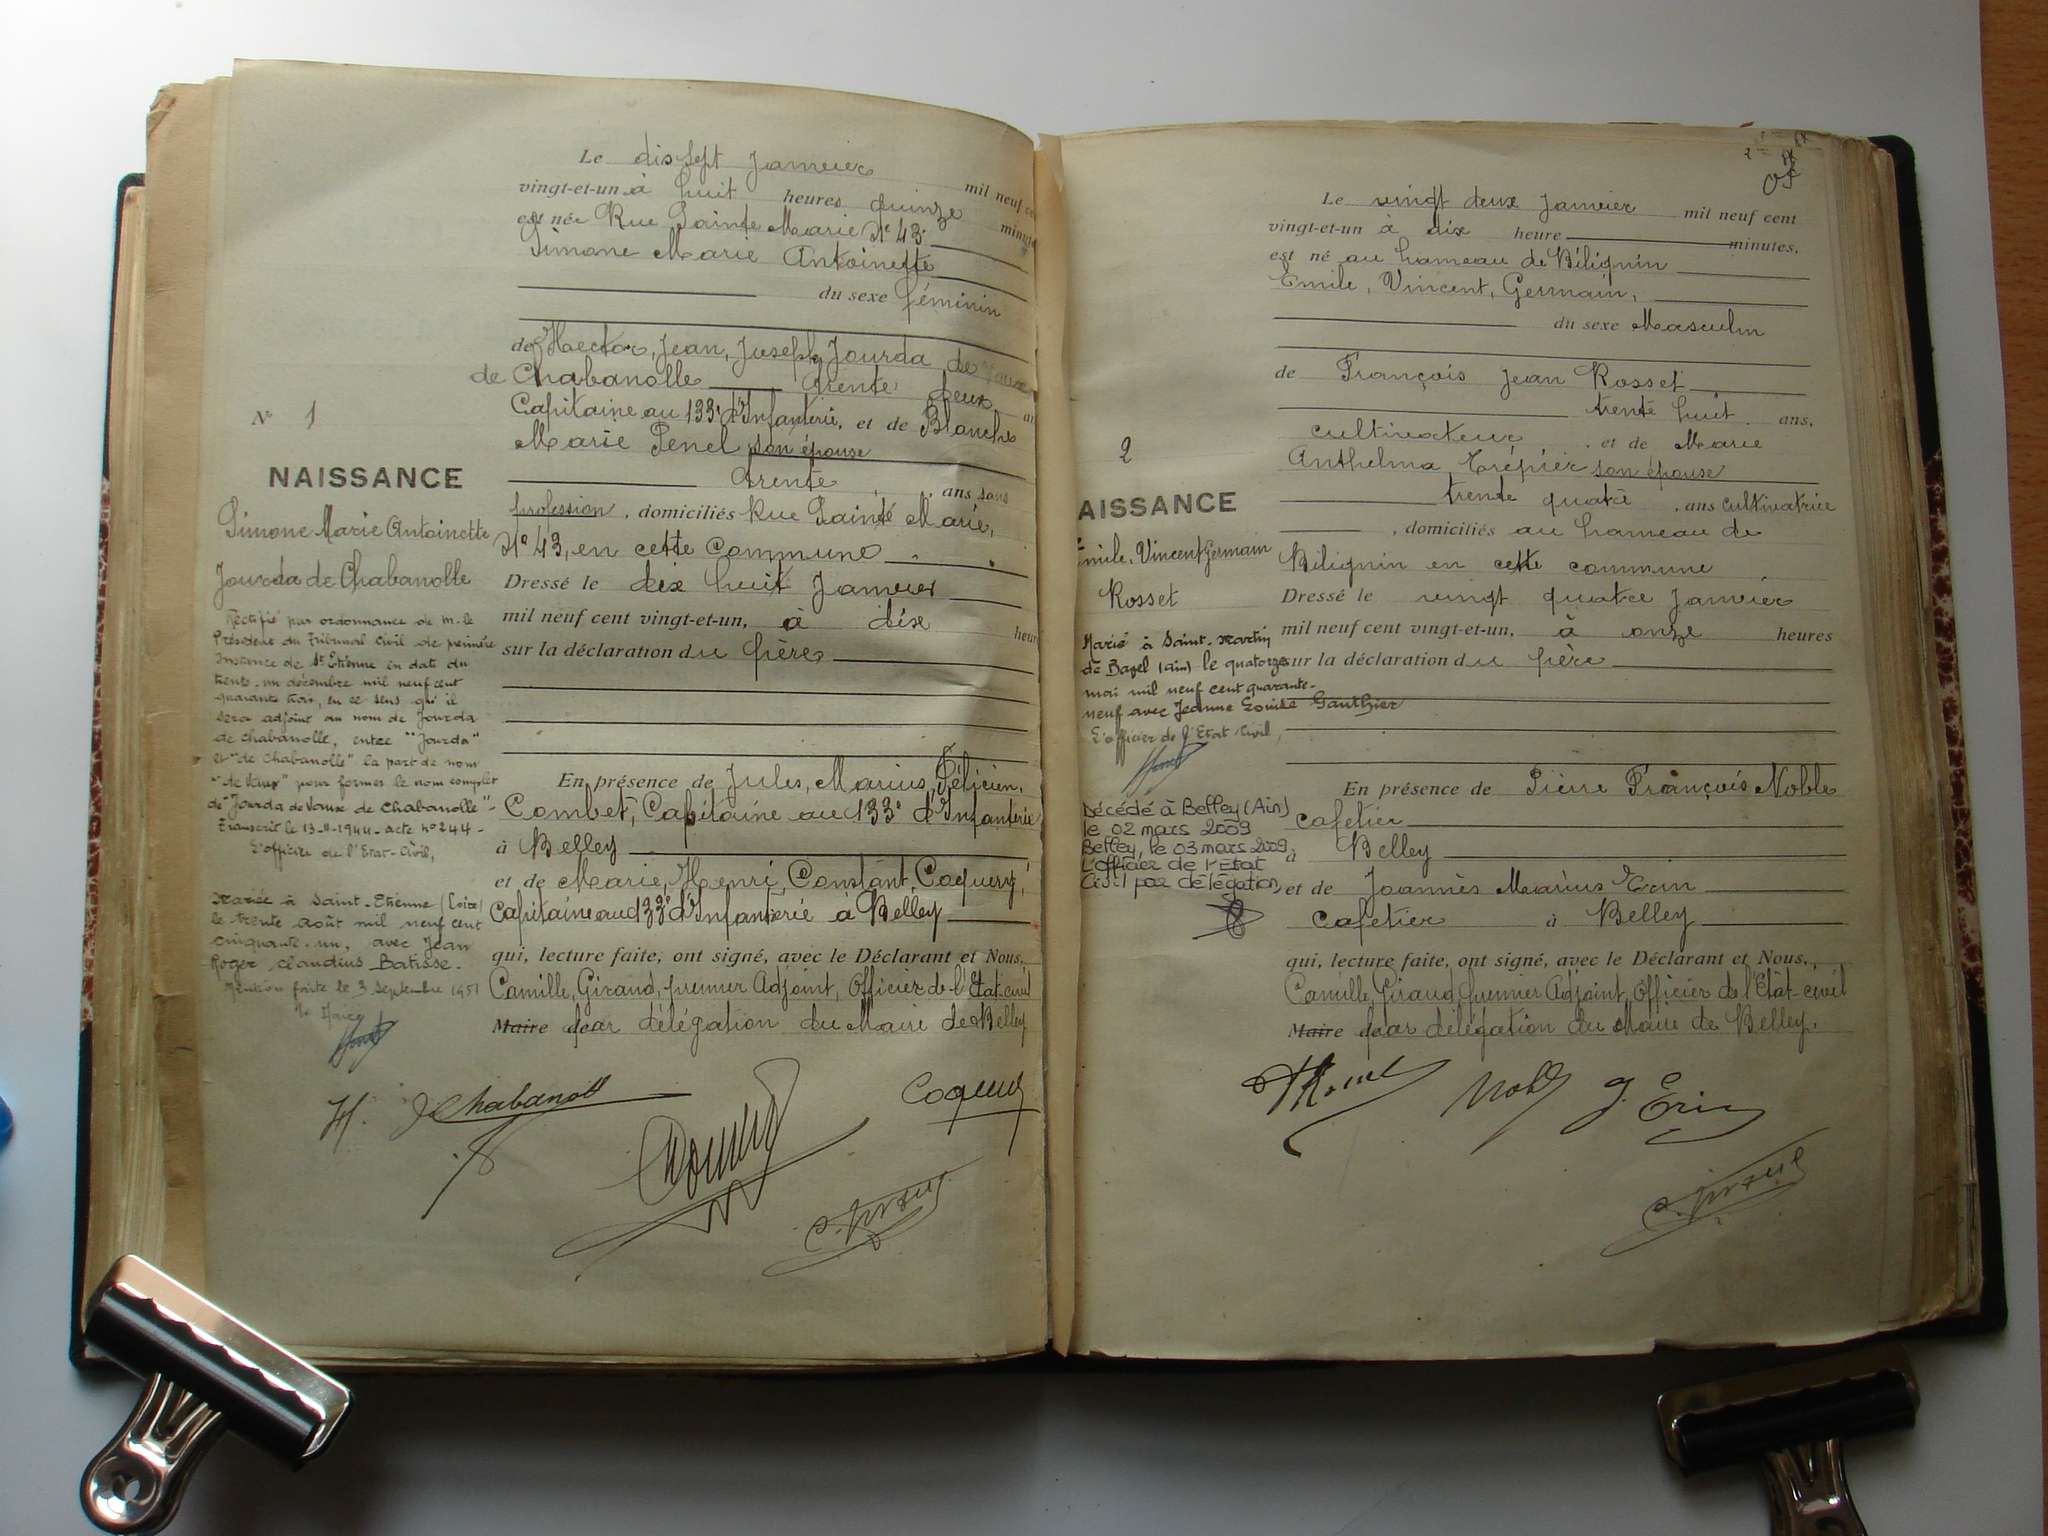 Le dix sept Janvier mil neuf ce
vingt-et-un à huit heures quinze minutes
est née Rue Sainte Marie N° 43
Simone Marie Antoinette
du sexe féminin
de Hector, Jean, Joseph, Jourda de Vaux
de Chabanolle trente deux an
Capitaine au 133e d'Infanterie, et de Blanche
Marie Penel son épouse
trente ans sans
profession, domiciliés Rue Sainte Marie,
N° 43, en cette Commune
Dressé le dix huit Janvier
mil neuf cent vingt-et-un, à dix heur
sur la déclaration du père
En présence de Jules, Marius, Félicien,
Combet, Capitaine au 133e d'Infanterie
à Belley
et de Marie, Henri, Constant, Coquery,
Capitaine au 133e d'Infanterie à Belley
qui, lecture faite, ont signé, avec le Déclarant et Nous,
Camille, Giraud, premier Adjoint, Officier de l'Etat-civil
Maire par délégation du Maire de Belley
N° 1
NAISSANCE
Simone Marie Antoinette
Jourda de Chabanolle
Rectifié par ordonnance de M. le
Président du Tribunal Civil de première
Instance de St Etienne en date du
trente-un décembre mil neuf cent
quarante trois, en ce sens qu'il
sera adjoint au nom de Jourda
de Chabanolle, entre "Jourda"
et "de Chabanolle" la part de nom
"de Vaux" pour former le nom complet
de "Jourda de Vaux de Chabanolle"-
Transcrit le 13-11-1944- acte n° 244-
L'officier de l'Etat-Civil,
Mariée à Saint-Etienne (Loire)
le trente août mil neuf cent
cinquante-un, avec Jean
Roger Claudius Batisse.
Mention faite le 3 septembre 1951
Le Maire
H. J Chabanoll
Coquery
C. Giraud
2
Le vingt deux Janvier mil neuf cent
vingt-et-un à dix heure minutes,
est né au hameau de Bilignin
Emile, Vincent, Germain,
du sexe Masculin
de François Jean Rosset
trente huit ans,
cultivateur, et de Marie
Anthelma Trépier son épouse
trente quatre, ans cultivatrice
, domiciliés au hameau de
Bilignin en cette commune
Dressé le vingt quatre Janvier
mil neuf cent vingt-et-un, à onze heures
sur la déclaration du père
En présence de Pierre François Noble
cafetier
à Belley
et de Joannès Marius Erin
Cafetier à Belley
qui, lecture faite, ont signé, avec le Déclarant et Nous,
Camille, Giraud, premier Adjoint, Officier de l'Etat-civil
Maire par délégation du Maire de Belley.
2
AISSANCE
Emile, Vincent, Germain
Rosset
Marié à Saint-Martin
de Bavel (Ain) le quatorze
mai mil neuf cent quarante-
neuf avec Jeanne Louise Gauthier
L'officier de l'Etat Civil,
Décédé à Belley (Ain)
le 02 mars 2009
Belley, le 03 mars 2009
L'officier de l'Etat
Civil par délégation
Noble J. Erin
C. Giraud